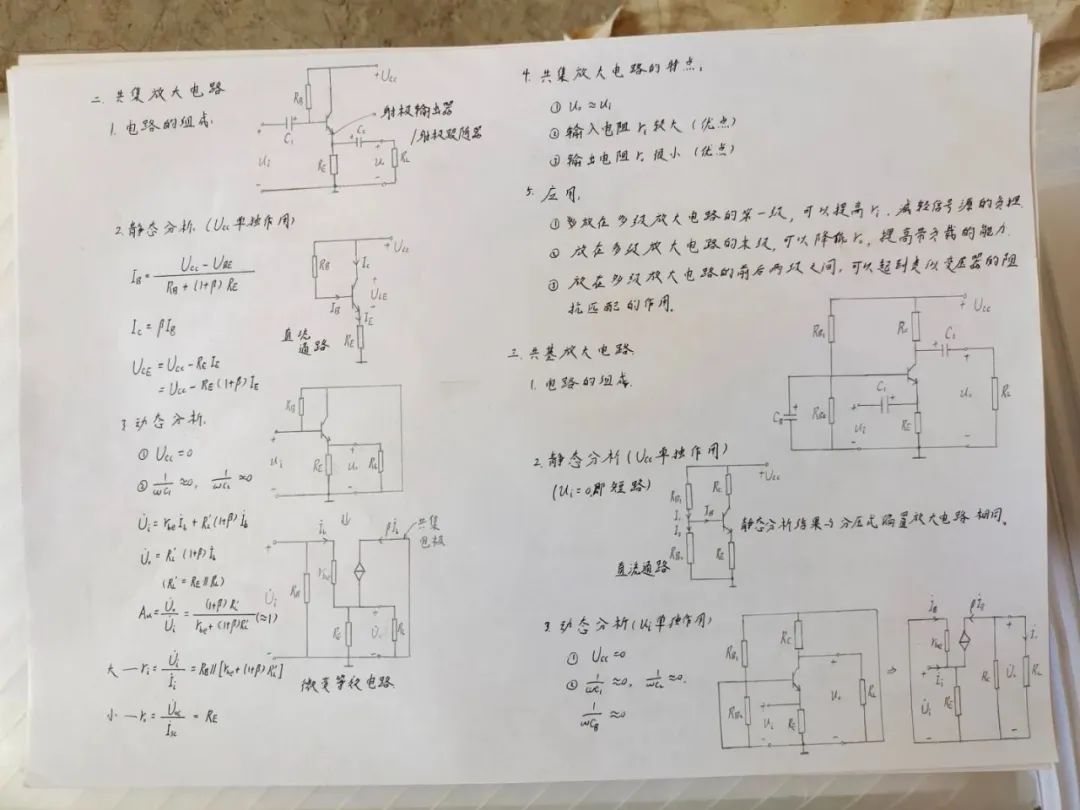 二. 共集放大电路
1. 电路的组成.
+Ucc
RB
C1
射极输出器
/射极跟随器
C2
Ui
RE
Uo
RL
2. 静态分析. (Ucc单独作用)
IB = (Ucc - UBE) / (RB + (1+β) RE)
Ic = βIB
UCE = Ucc - RE IE
= Ucc - RE (1+β) IE
+Ucc
RB
Ic
UCE
IB
IE
RE
直流
通路
3. 动态分析.
① Ucc = 0
② 1/ωC1 ≈0, 1/ωC2 ≈0
U̇i = rbe İb + RL'(1+β) İb
U̇o = RL' (1+β) İb
(RL' = RE // RL)
Au = U̇o/U̇i = (1+β)RL' / (rbe + (1+β)RL') (≈1)
大 — ri = U̇i/İi = RB // [rbe + (1+β) RL']
小 — ro = U̇oc/İsc = RE
RB
Ui
RE
Uo
RL
⇓
İb
βİb
共集
电极
RB
rbe
U̇i
RE
U̇o
RL
微变等效电路
4. 共集放大电路的特点.
① Uo ≈ Ui
② 输入电阻 ri 较大 (优点)
③ 输出电阻 ro 很小 (优点)
5. 应用.
① 多放在多级放大电路的第一级, 可以提高 ri. 减轻信号源的负担.
② 放在多级放大电路的末级, 可以降低 ro, 提高带负载的能力.
③ 放在多级放大电路的前后两级之间, 可以起到类似变压器的阻
抗匹配的作用.
三. 共基放大电路
1. 电路的组成.
+Ucc
RB1
RC
C2
C1
CB
RB2
Ui
RE
Uo
RL
2. 静态分析 (Ucc单独作用)
(Ui=0即短路)
+Ucc
RB1
RC
I1
IB
I2
RB2
RE
直流通路
静态分析结果与分压式偏置放大电路相同.
3. 动态分析 (Ui单独作用)
① Ucc = 0
② 1/ωC1 ≈0, 1/ωC2 ≈0.
1/ωCB ≈0
RB1
RC
RB2
Ui
RE
Uo
RL
⇒
İB
βİB
rbe
İi
U̇i
RE
RC
U̇o
RL